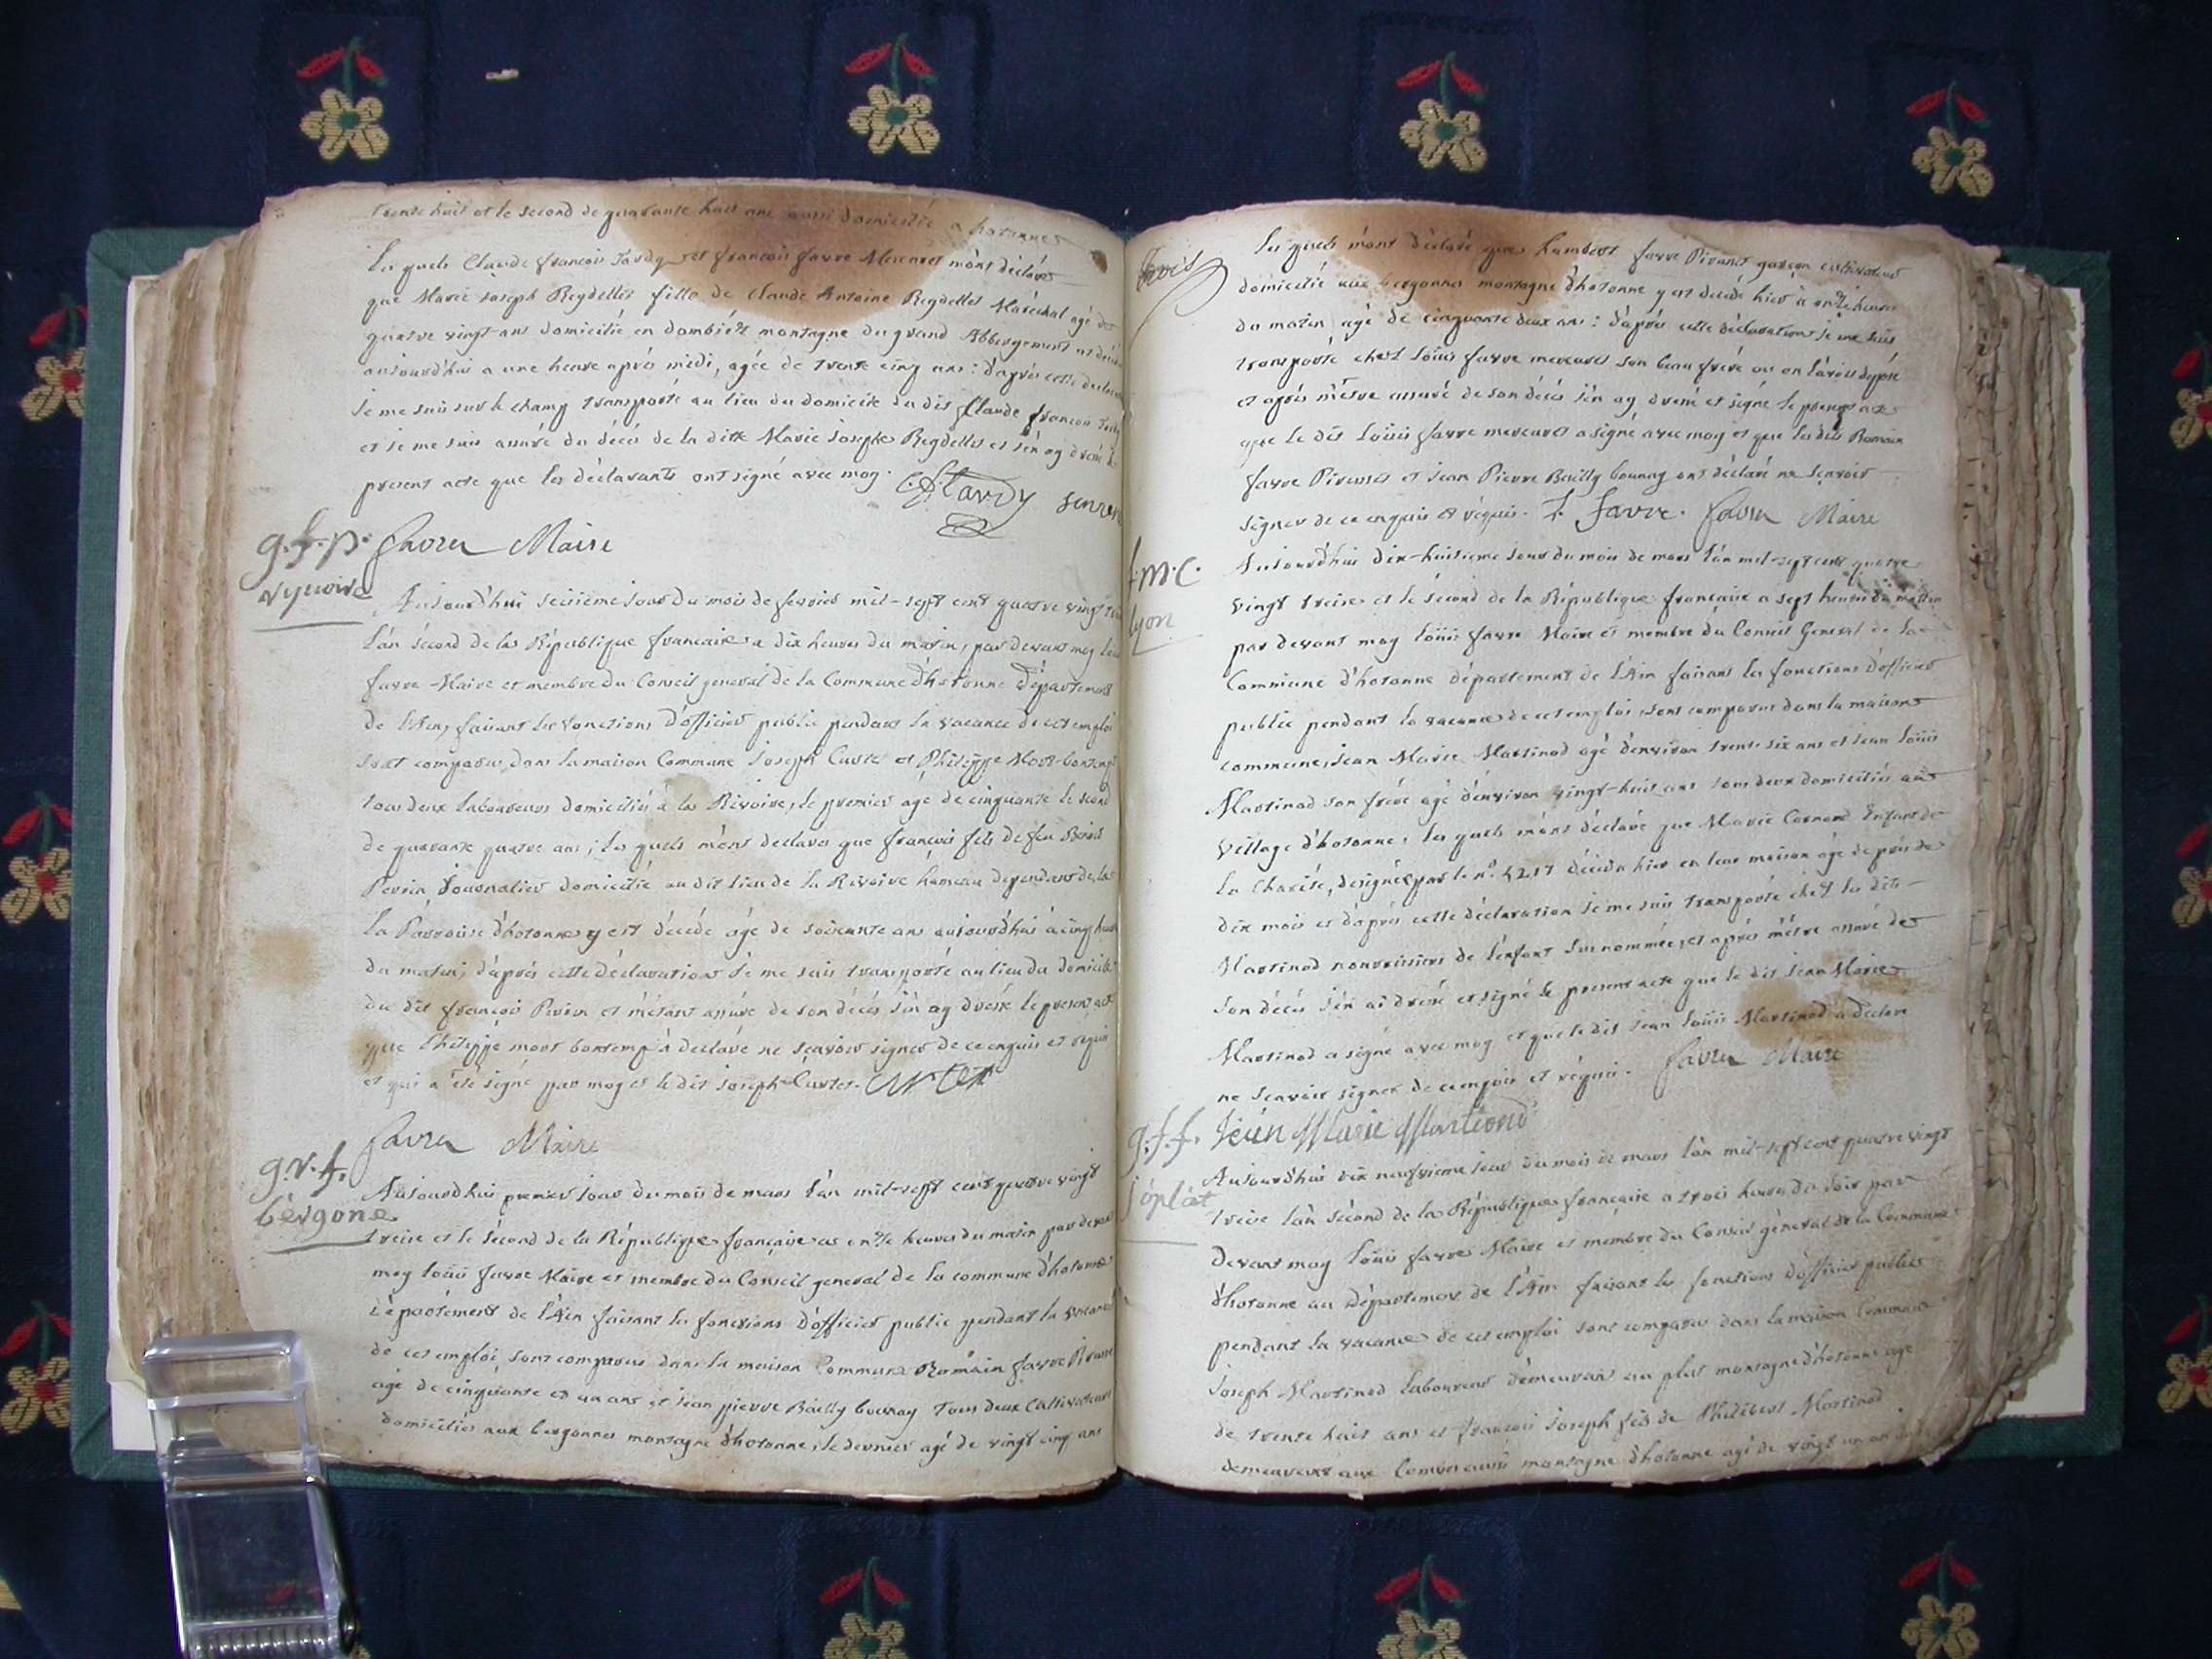 trente huit et le second de quarante huit ans aussi domicilié a hotonnes
les quels Claude françois Tardy et françois favre Mercuret m'ont déclaré
que Marie Joseph Reydellet fille de Claude Antoine Reydellet Maréchal agé de
quatre vingt ans domicilié en dombiére montagne du grand Abbergement
aujourd'hui a une heure aprés midi, agée de trente cinq ans : d'aprés cette
Je me suis sur le champ transporté au lieu du domicile du dit Claude françois
et je me suis assuré du décés de la ditte Marie Joseph Reydellet et j'en ay dressé le
present acte que les déclarants ont signé avec moy. C. f. tardy
g. f. p. favre Maire
Aujourd'hui seizieme jour du mois de fevrier mil-sept cent quatre vingt
l'an sécond de la République francaise a dix heures du matin, par devant moy
favre Maire et membre du Conseil general de la Commune d'hotonne Département
de l'Ain, faisant les fonctions d'officier public pendant la vacance de cet emploi
sont comparus dans la maison Commune Joseph Curtet et Philippe
tous deux laboureurs domiciliés à la Rivoire, le premier agé de cinquante le second
de quarante quatre ans ; les quels m'ont déclaré que françois fils de feu
Perrin Journalier domicilié au dit lieu de la Rivoire hameau dependant de la
la Parroisse d'hotonne y est décédé agé de soixante ans aujourd'hui à cinq heures
du matin, d'aprés cette déclaration Je me suis transporté au lieu du domicile
du dit françois Perrin et m'étant assuré de son décés j'en ay dressé le present acte
que Philippe mort bontemp à déclaré ne scavoir signer de ce enquis et requis
et qui a été signé par moy et le dit Joseph Curtet. curtet
favre Maire
g. v. f.
bergone
Aujourdhui premier jour du mois de mars l'an mil-sept cent quatre vingt
treize et le sécond de la République française a onze heures du matin par devant
moy louis favre Maire et membre du Conseil general de la commune d'hotonne
Département de l'Ain faisant les fonctions d'officier public pendant la vacance
de cet emploi, sont comparus dans la maison Commune Romain favre
agé de cinquante et un ans et Jean pierre Bailly bounay Tous deux Cultivateurs
domiciliés aux bergonnes montagne d'hotonne, le dernier agé de vingt cinq ans
les quels m'ont déclaré que humbert favre garçon cultivateur
domicilié aux bergonnes montagne d'hotonne y est decédé hier à onze heures
du matin agé de cinquante deux ans : d'aprés cette déclaration je me suis
transporté chez louis favre mercuret son beau frére ou on l'avoit déposé
et aprés m'étre assuré de son décés j'en ay dressé et signé le present acte
que le dit louis favre mercuret a signé avec moy et que les dits Romain
favre et Jean Pierre Bailly bounay ont déclaré ne scavoir
signer de ce enquis et réquis. L. favre. favre Maire
m. c.
lyon
Aujourd'hui dix-huitieme jour du mois de mars l'an mil-sept cent quatre
vingt treize et le sécond de la République francaise a sept heures du matin
par devant moy louis favre Maire et membre du Conseil General de la
Commune d'hotonne département de l'Ain faisant les fonctions d'officier
public pendant la vacance de cet emploi, sont comparus dans la maison
commune, Jean Marie Martinod agé d'environ trente six ans et Jean louis
Martinod son frére agé d'environ vingt-huit ans tous deux domiciliés au
village d'hotonne, les quels m'ont déclaré que Marie Enfant de
la Charité, designée par le n° décéda hier en leur maison agé de prés de
dix mois et d'aprés cette déclaration je me suis transporté chez les dits
Martinod nourriciers de l'enfant sus nommée, et aprés m'étre assuré de
son décés j'en ai dressé et signé le present acte que le dit Jean Marie
Martinod a signé avec moy et que le dit Jean louis Martinod a declaré
ne scavoir signer de ce enquis et réquis. favre Maire
g. f. f. jean Marie Martinod
Aujourd'hui dix neufvieme jour du mois de mars l'an mil-sept cent quatre vingt
treize l'an sécond de la République française a trois heures du soir par
devant moy louis favre Maire et membre du Conseil géneral de la Commune
d'hotonne au Département de l'Ain faisant les fonctions d'officier public
pendant la vacance de cet emploi sont comparus dans la maison Commune
Joseph Martinod laboureur demeurant au plat montagne d'hotonne agé
de trente huit ans et françois Joseph fils de Philibert Martinod
demeurant aux montagne d'hotonne agé de vingt un an